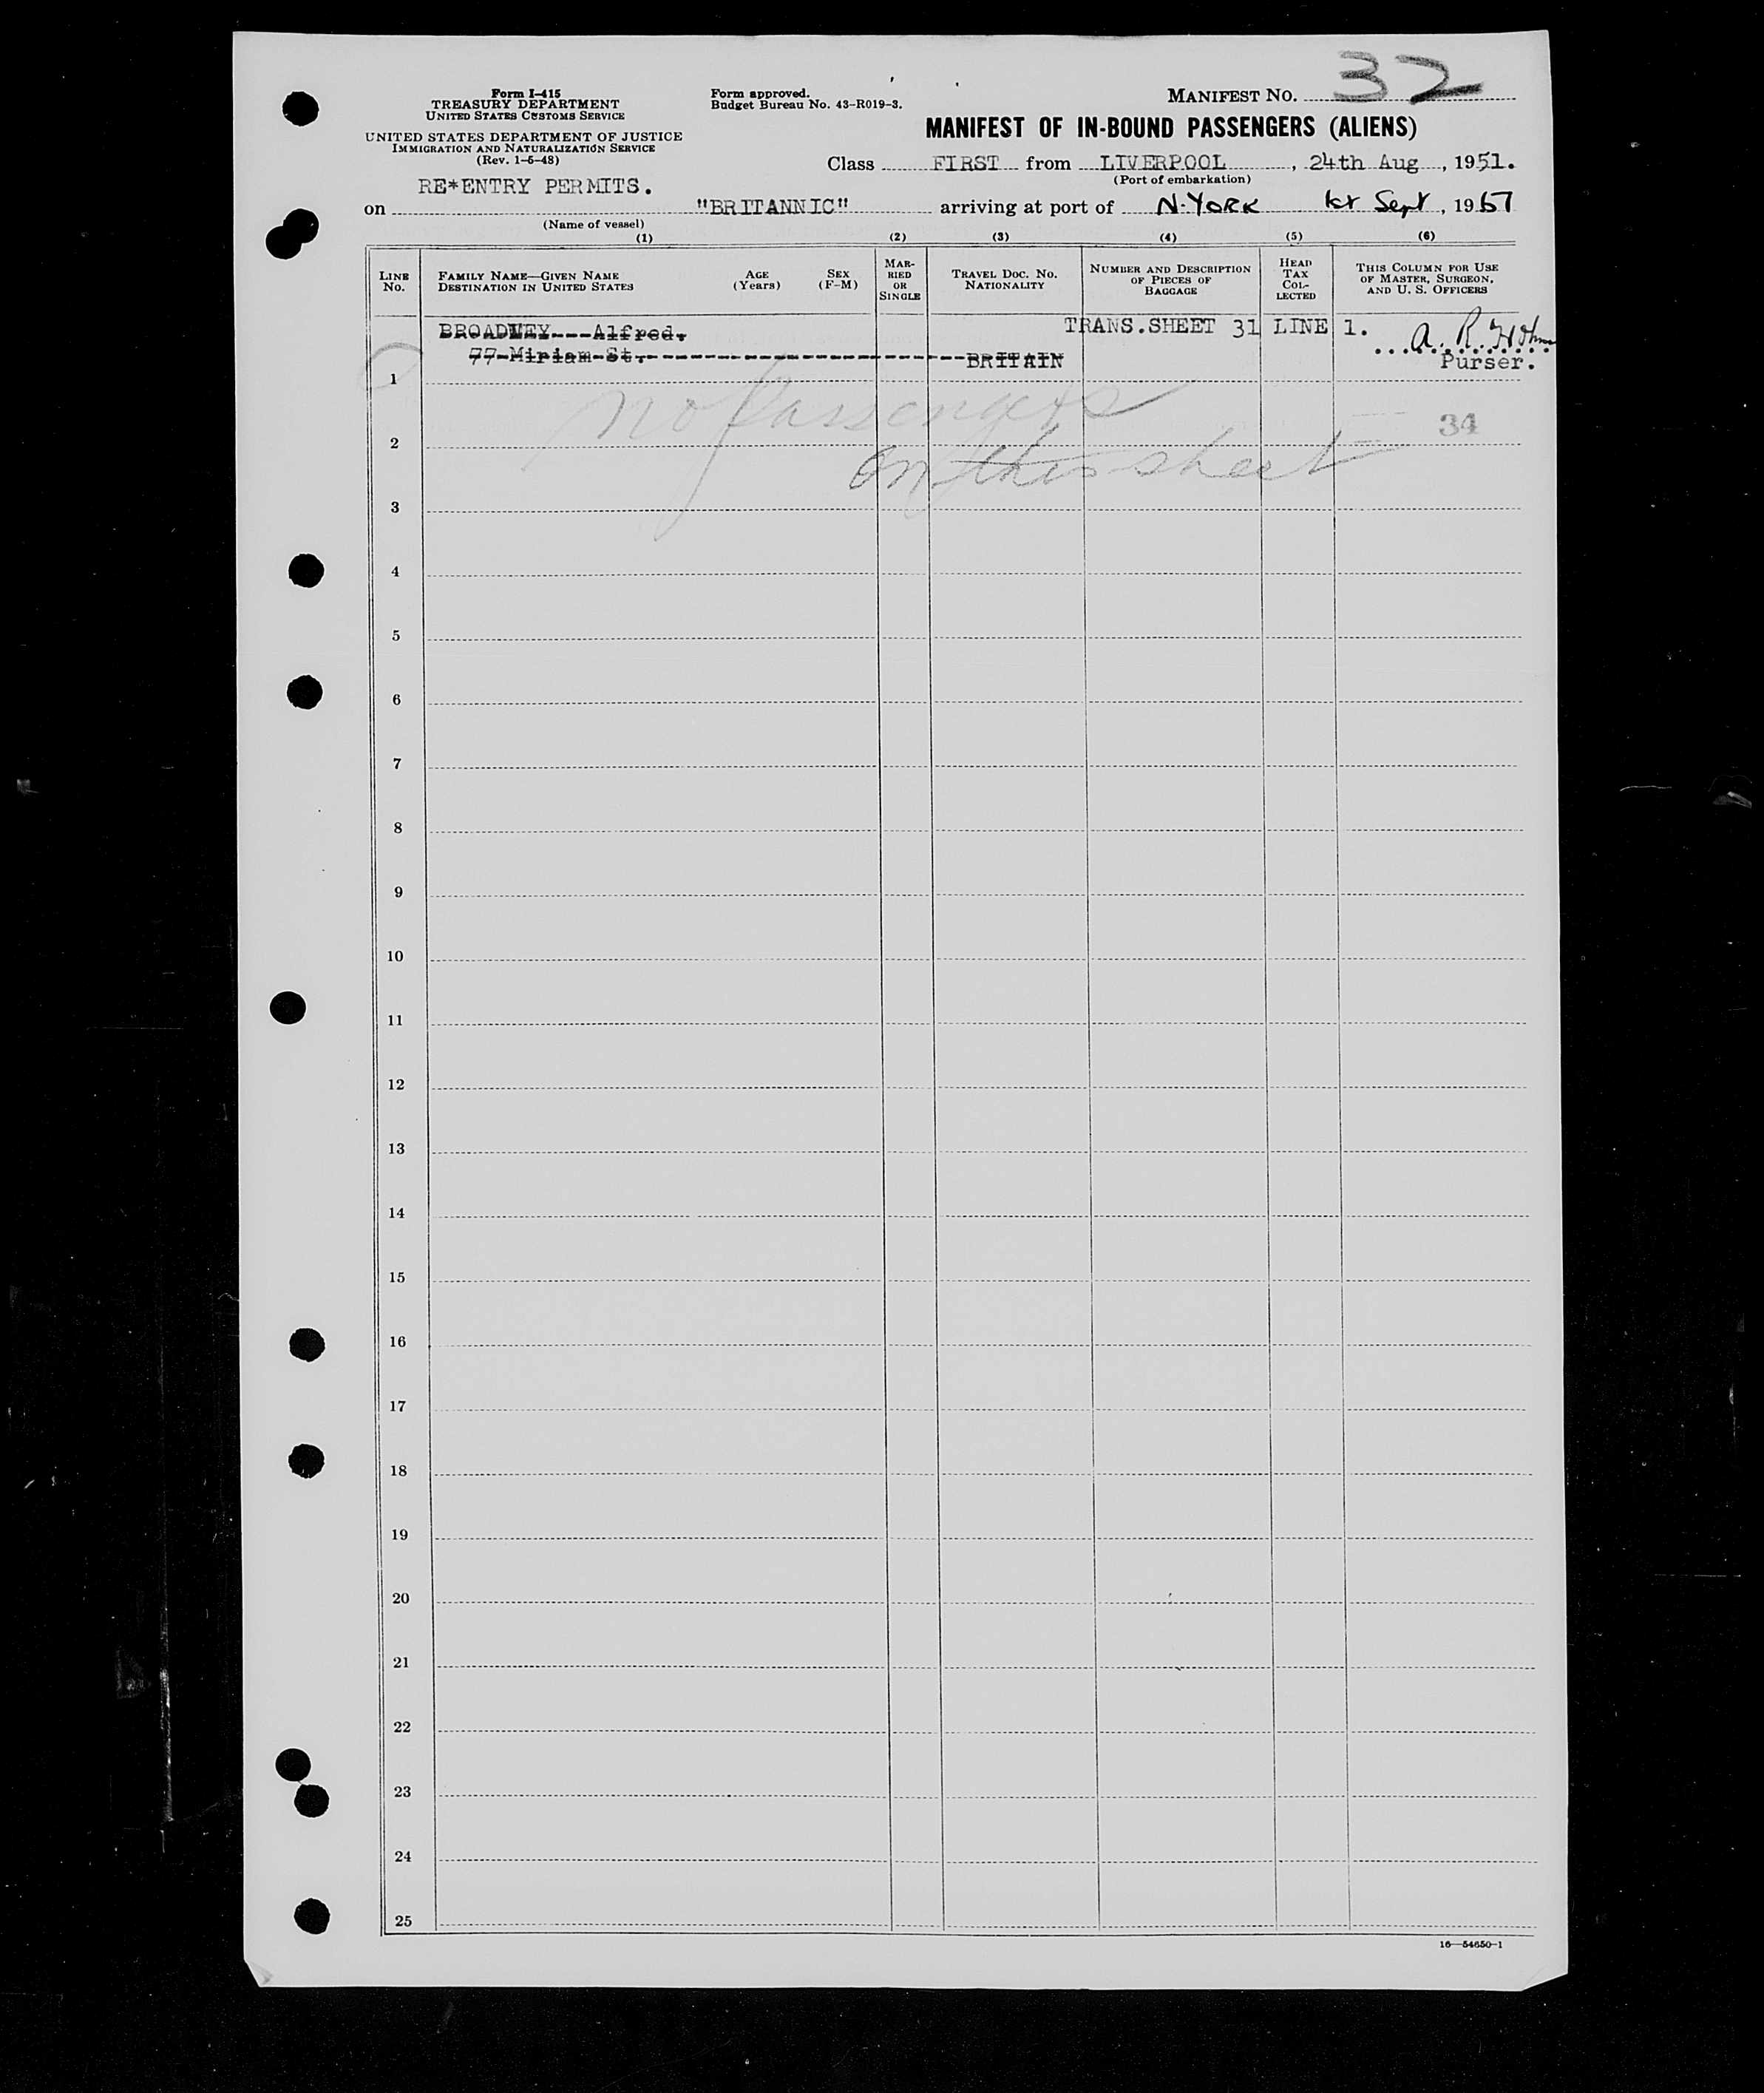 Form I-415
TREASURY DEPARTMENT
UNITED STATES CUSTOMS SERVICE
UNITED STATES DEPARTMENT OF JUSTICE
IMMIGRATION AND NATURALIZATION SERVICE
(Rev. 1-5-48)
Form approved.
Budget Bureau No. 43-R019-3.
MANIFEST NO. 32
MANIFEST OF IN-BOUND PASSENGERS (ALIENS)
Class FIRST from LIVERPOOL, 24th Aug, 1951.
(Port of embarkation)
RE*ENTRY PERMITS.
on "BRITANNIC" arriving at port of N.YORK 1st Sept, 1951
(Name of vessel)
(1) (2) (3) (4) (5) (6)
LINE No.
FAMILY NAME—GIVEN NAME
DESTINATION IN UNITED STATES
AGE (Years)
SEX (F-M)
MARRIED OR SINGLE
TRAVEL DOC. NO.
NATIONALITY
NUMBER AND DESCRIPTION OF PIECES OF BAGGAGE
HEAD TAX COLLECTED
THIS COLUMN FOR USE OF MASTER, SURGEON, AND U. S. OFFICERS
BROADLEY---Alfred. TRANS.SHEET 31 LINE 1. A. R.
77-Miriam-St. BRITAIN Purser.
1
No Passengers 34
2
on this sheet
3
4
5
6
7
8
9
10
11
12
13
14
15
16
17
18
19
20
21
22
23
24
25
16—54650-1